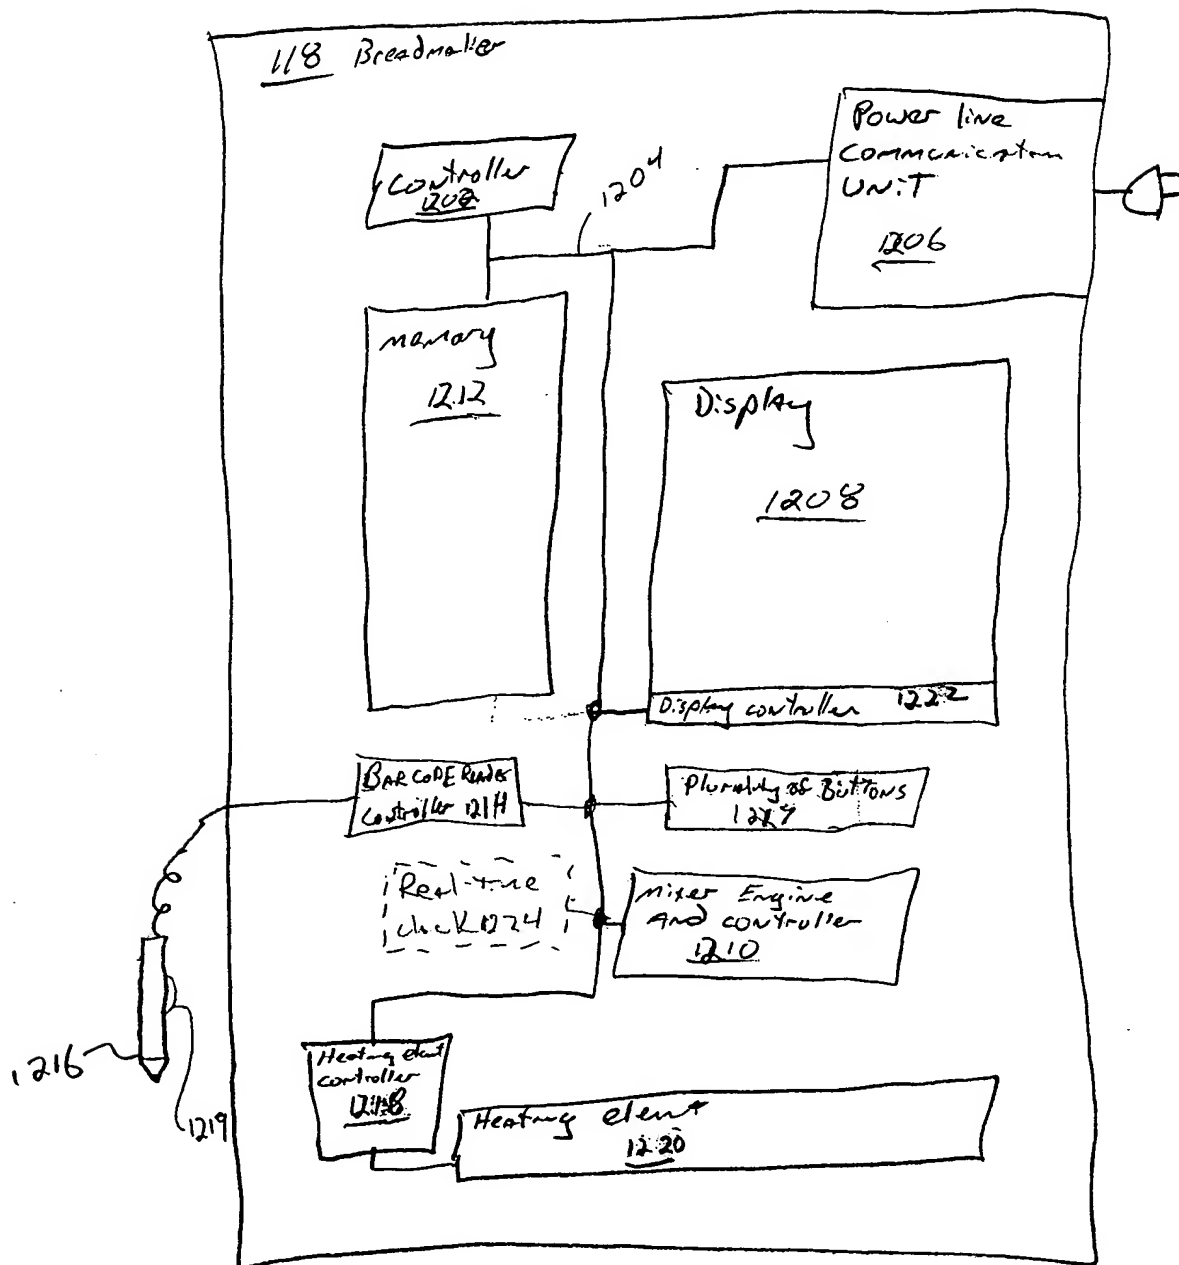 118 Breadmaker
Power line
Communication
UNIT
1206
Controller
1202
1204
Memory
1212
Display
1208
Display controller 1222
BAR CODE Reader
Controller 1214
Plurality of Buttons
Real-time
clock 1224
Mixer Engine
And controller
1210
Heating elent
controller
1218
Heating elent
1220
1216
1219